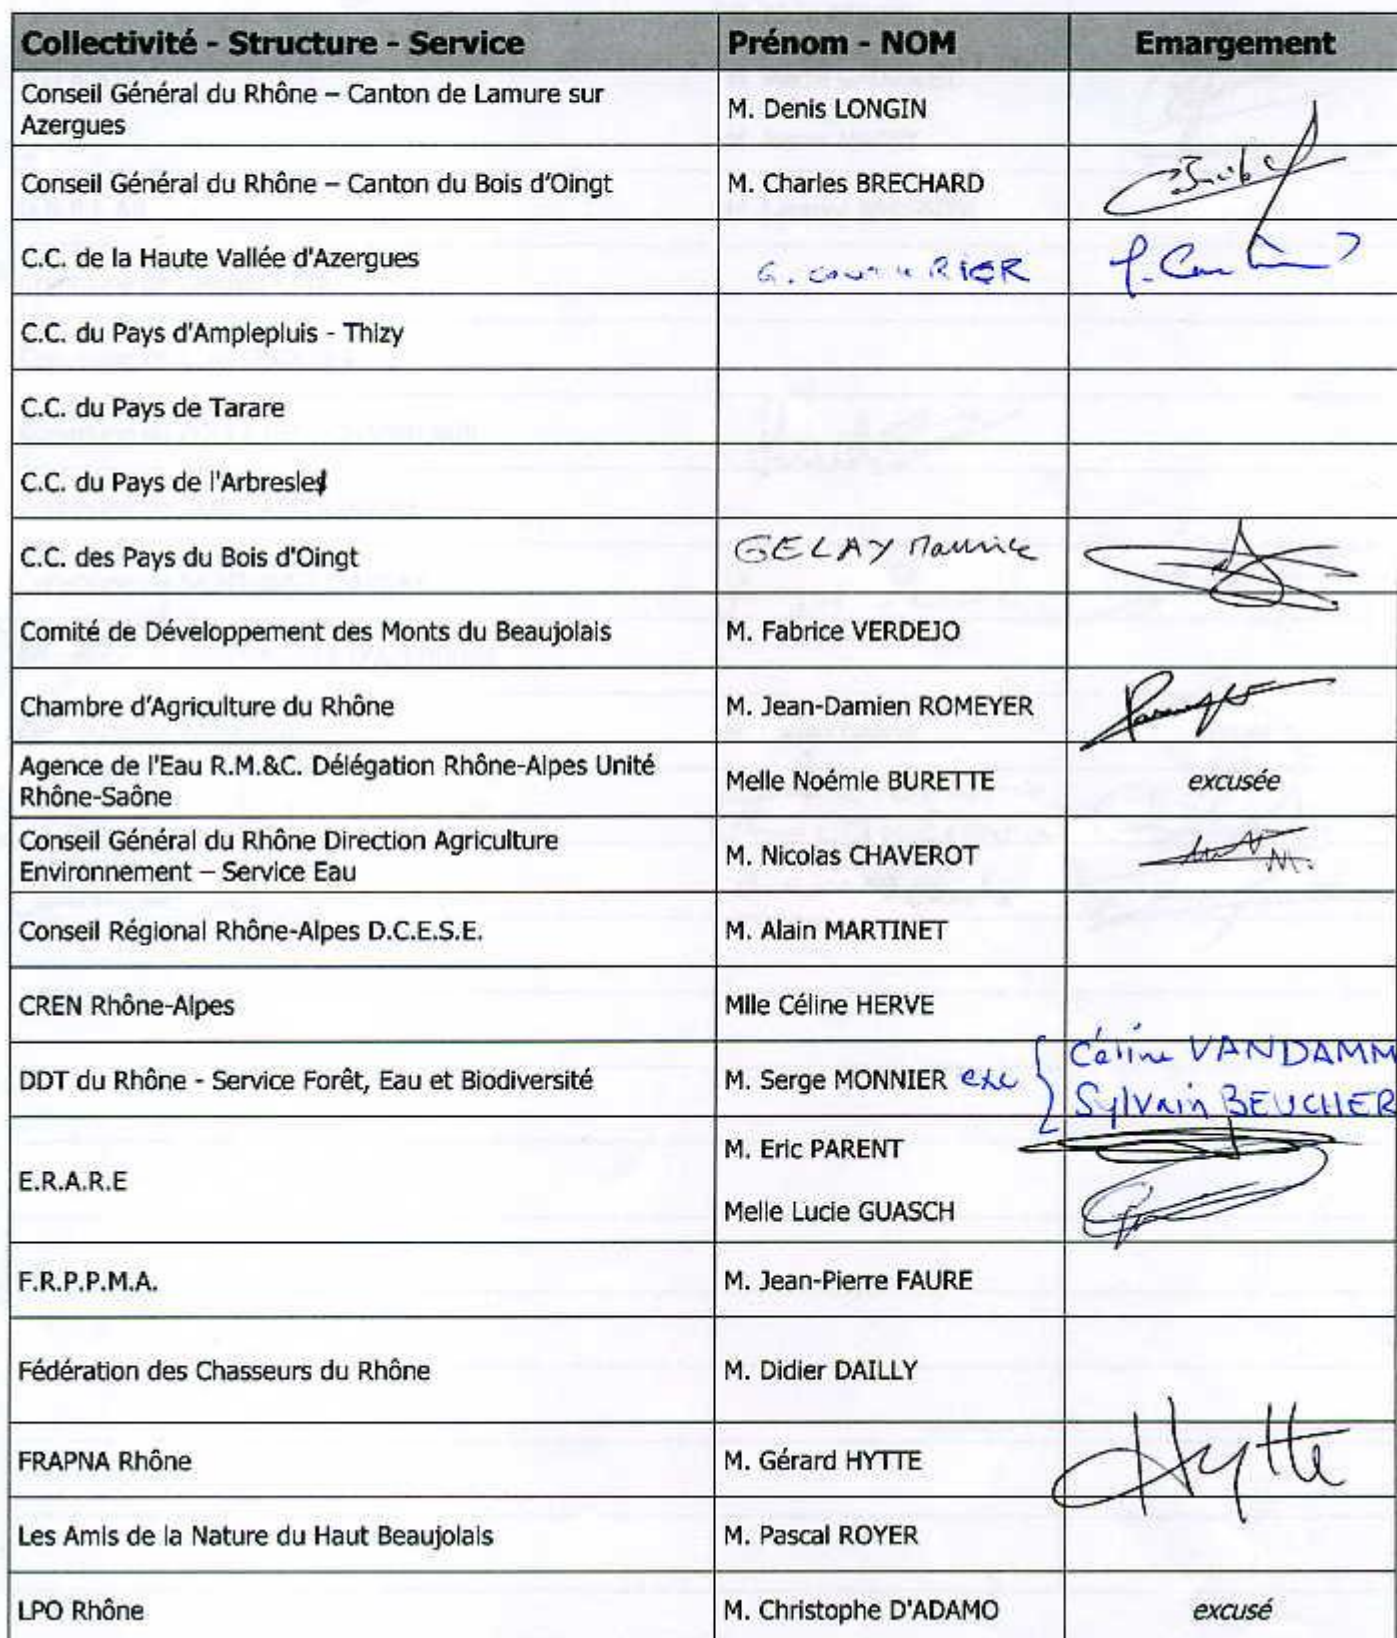 Collectivité - Structure - Service Prénom - NOM Emargement
Conseil Général du Rhône – Canton de Lamure sur
Azergues
M. Denis LONGIN
Conseil Général du Rhône – Canton du Bois d'Oingt M. Charles BRECHARD
C.C. de la Haute Vallée d'Azergues G.
C.C. du Pays d'Amplepluis - Thizy
C.C. du Pays de Tarare
C.C. du Pays de l'Arbresle
C.C. des Pays du Bois d'Oingt GELAY Maurice
Comité de Développement des Monts du Beaujolais M. Fabrice VERDEJO
Chambre d'Agriculture du Rhône M. Jean-Damien ROMEYER
Agence de l'Eau R.M.&C. Délégation Rhône-Alpes Unité
Rhône-Saône
Melle Noémie BURETTE excusée
Conseil Général du Rhône Direction Agriculture
Environnement – Service Eau
M. Nicolas CHAVEROT
Conseil Régional Rhône-Alpes D.C.E.S.E. M. Alain MARTINET
CREN Rhône-Alpes Mlle Céline HERVE
DDT du Rhône - Service Forêt, Eau et Biodiversité M. Serge MONNIER exc
Céline VANDAMM
Sylvain BEUCHER
E.R.A.R.E
M. Eric PARENT
Melle Lucie GUASCH
F.R.P.P.M.A. M. Jean-Pierre FAURE
Fédération des Chasseurs du Rhône M. Didier DAILLY
FRAPNA Rhône M. Gérard HYTTE Hytte
Les Amis de la Nature du Haut Beaujolais M. Pascal ROYER
LPO Rhône M. Christophe D'ADAMO excusé